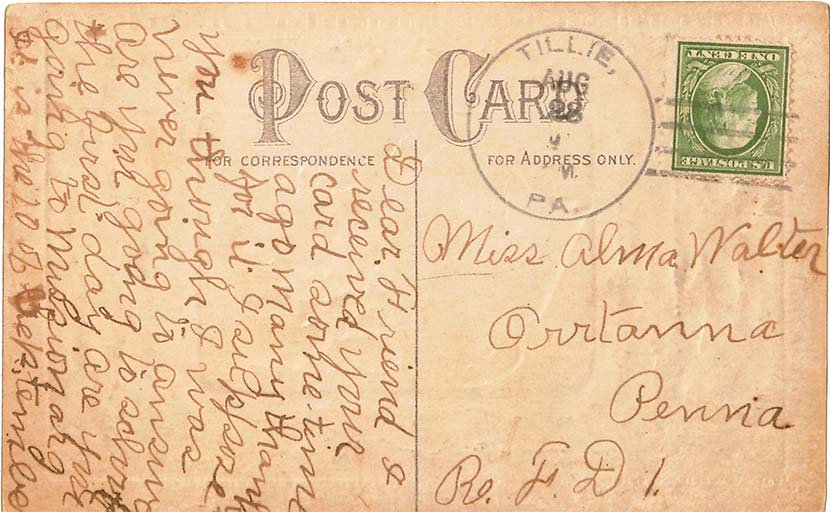 POST CARD
FOR CORRESPONDENCE
FOR ADDRESS ONLY.
TILLIE,
AUG
PA.
ONE CENT
U.S. POSTAGE
Miss Alma Walter
Orrtanna
Penna
R. F. D 1.
Dear Friend I
received your
card some time
ago many thank
for it. I suppose
you through I was
never going to answ
are you going to school
the first day are you
going to
it is the 10 of September